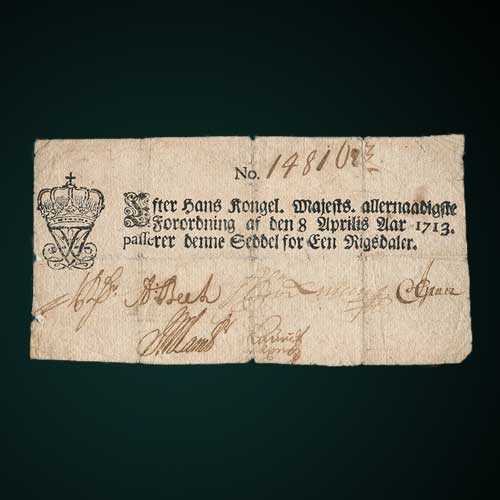 No. 148102
Efter Hans Kongel. Majests. allernaadigste
Forordning af den 8 Aprilis Aar 1713.
passerer denne Seddel for Een Rigsdaler.
ABech